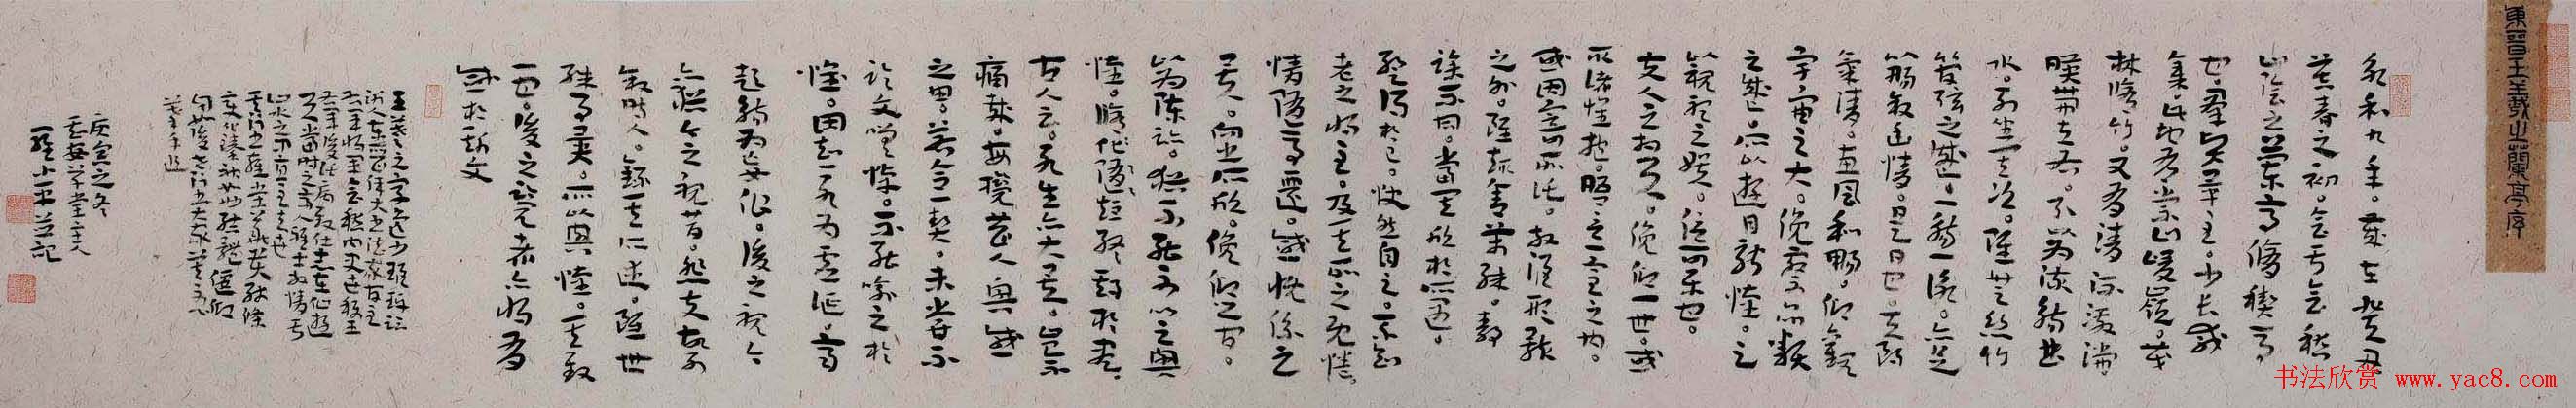 東晉王羲之蘭亭序
永和九年。歲在癸丑
暮春之初。會于會稽
山陰之蘭亭。脩稧事
也。羣賢畢至。少長咸
集。此地有崇山峻嶺。茂
林脩竹。又有清流激湍
暎帶左右。引以為流觴曲
水。列坐其次。雖無絲竹
管弦之盛。一觴一詠。亦足
以暢敘幽情。是日也。天朗
氣清。惠風和暢。仰觀
宇宙之大。俛察品類
之盛。所以遊目騁懷。足
以極視聽之娛。信可樂也。
夫人之相與。俛仰一世。或
取諸懷抱。晤言一室之內。
或因寄所託。放浪形骸
之外。雖趣舍萬殊。靜
躁不同。當其欣於所遇。
暫得於己。快然自足。不知
老之將至。及其所之既惓
情隨事遷。感慨係之
矣。向之所欣。俛仰之間。
以為陳跡。猶不能不以之興
懷。脩化隨短終期於盡。
古人云。死生亦大矣。豈不
痛哉。每攬昔人興感
之由。若合一契。未嘗不
臨文嗟悼。不能喻之於
懷。固知一死為虛誕。齊
彭殤為妄作。後之視今
亦猶今之視昔。悲夫故列
敘時人。錄其所述。雖世
殊事異。所以興懷。其致
一也。後之覽者亦將有
感於斯文
王羲之字逸少琅琊臨
沂人東晉偉大書法家官至
右軍將軍會稽內史世稱王
庚寅之冬
草堂主人
小平並記
书法欣赏 www.yac8.com